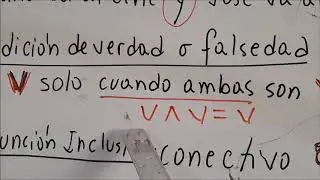 y José va a
dición de verdad o falsedad
V solo cuando ambas son
V ∧ V = V
unción Inclus conectivo